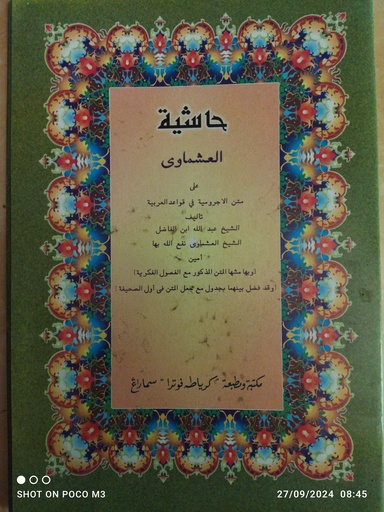 حاشية
العشماوى
على
متن الاجرومية في قواعد العربية
تأليف
الشيخ عبد الله ابن الفاضل
الشيخ العشماوى نفع الله بها
أمين
(وبهامشها المتن المذكور مع الفصول الفكرية)
(وقد فصل بينهما بجدول مع مجمل المتن فى أول الصحيفة)
مكتبة ومطبعة "كرياطه فوترا" سماراغ
SHOT ON POCO M3
27/09/2024 08:45